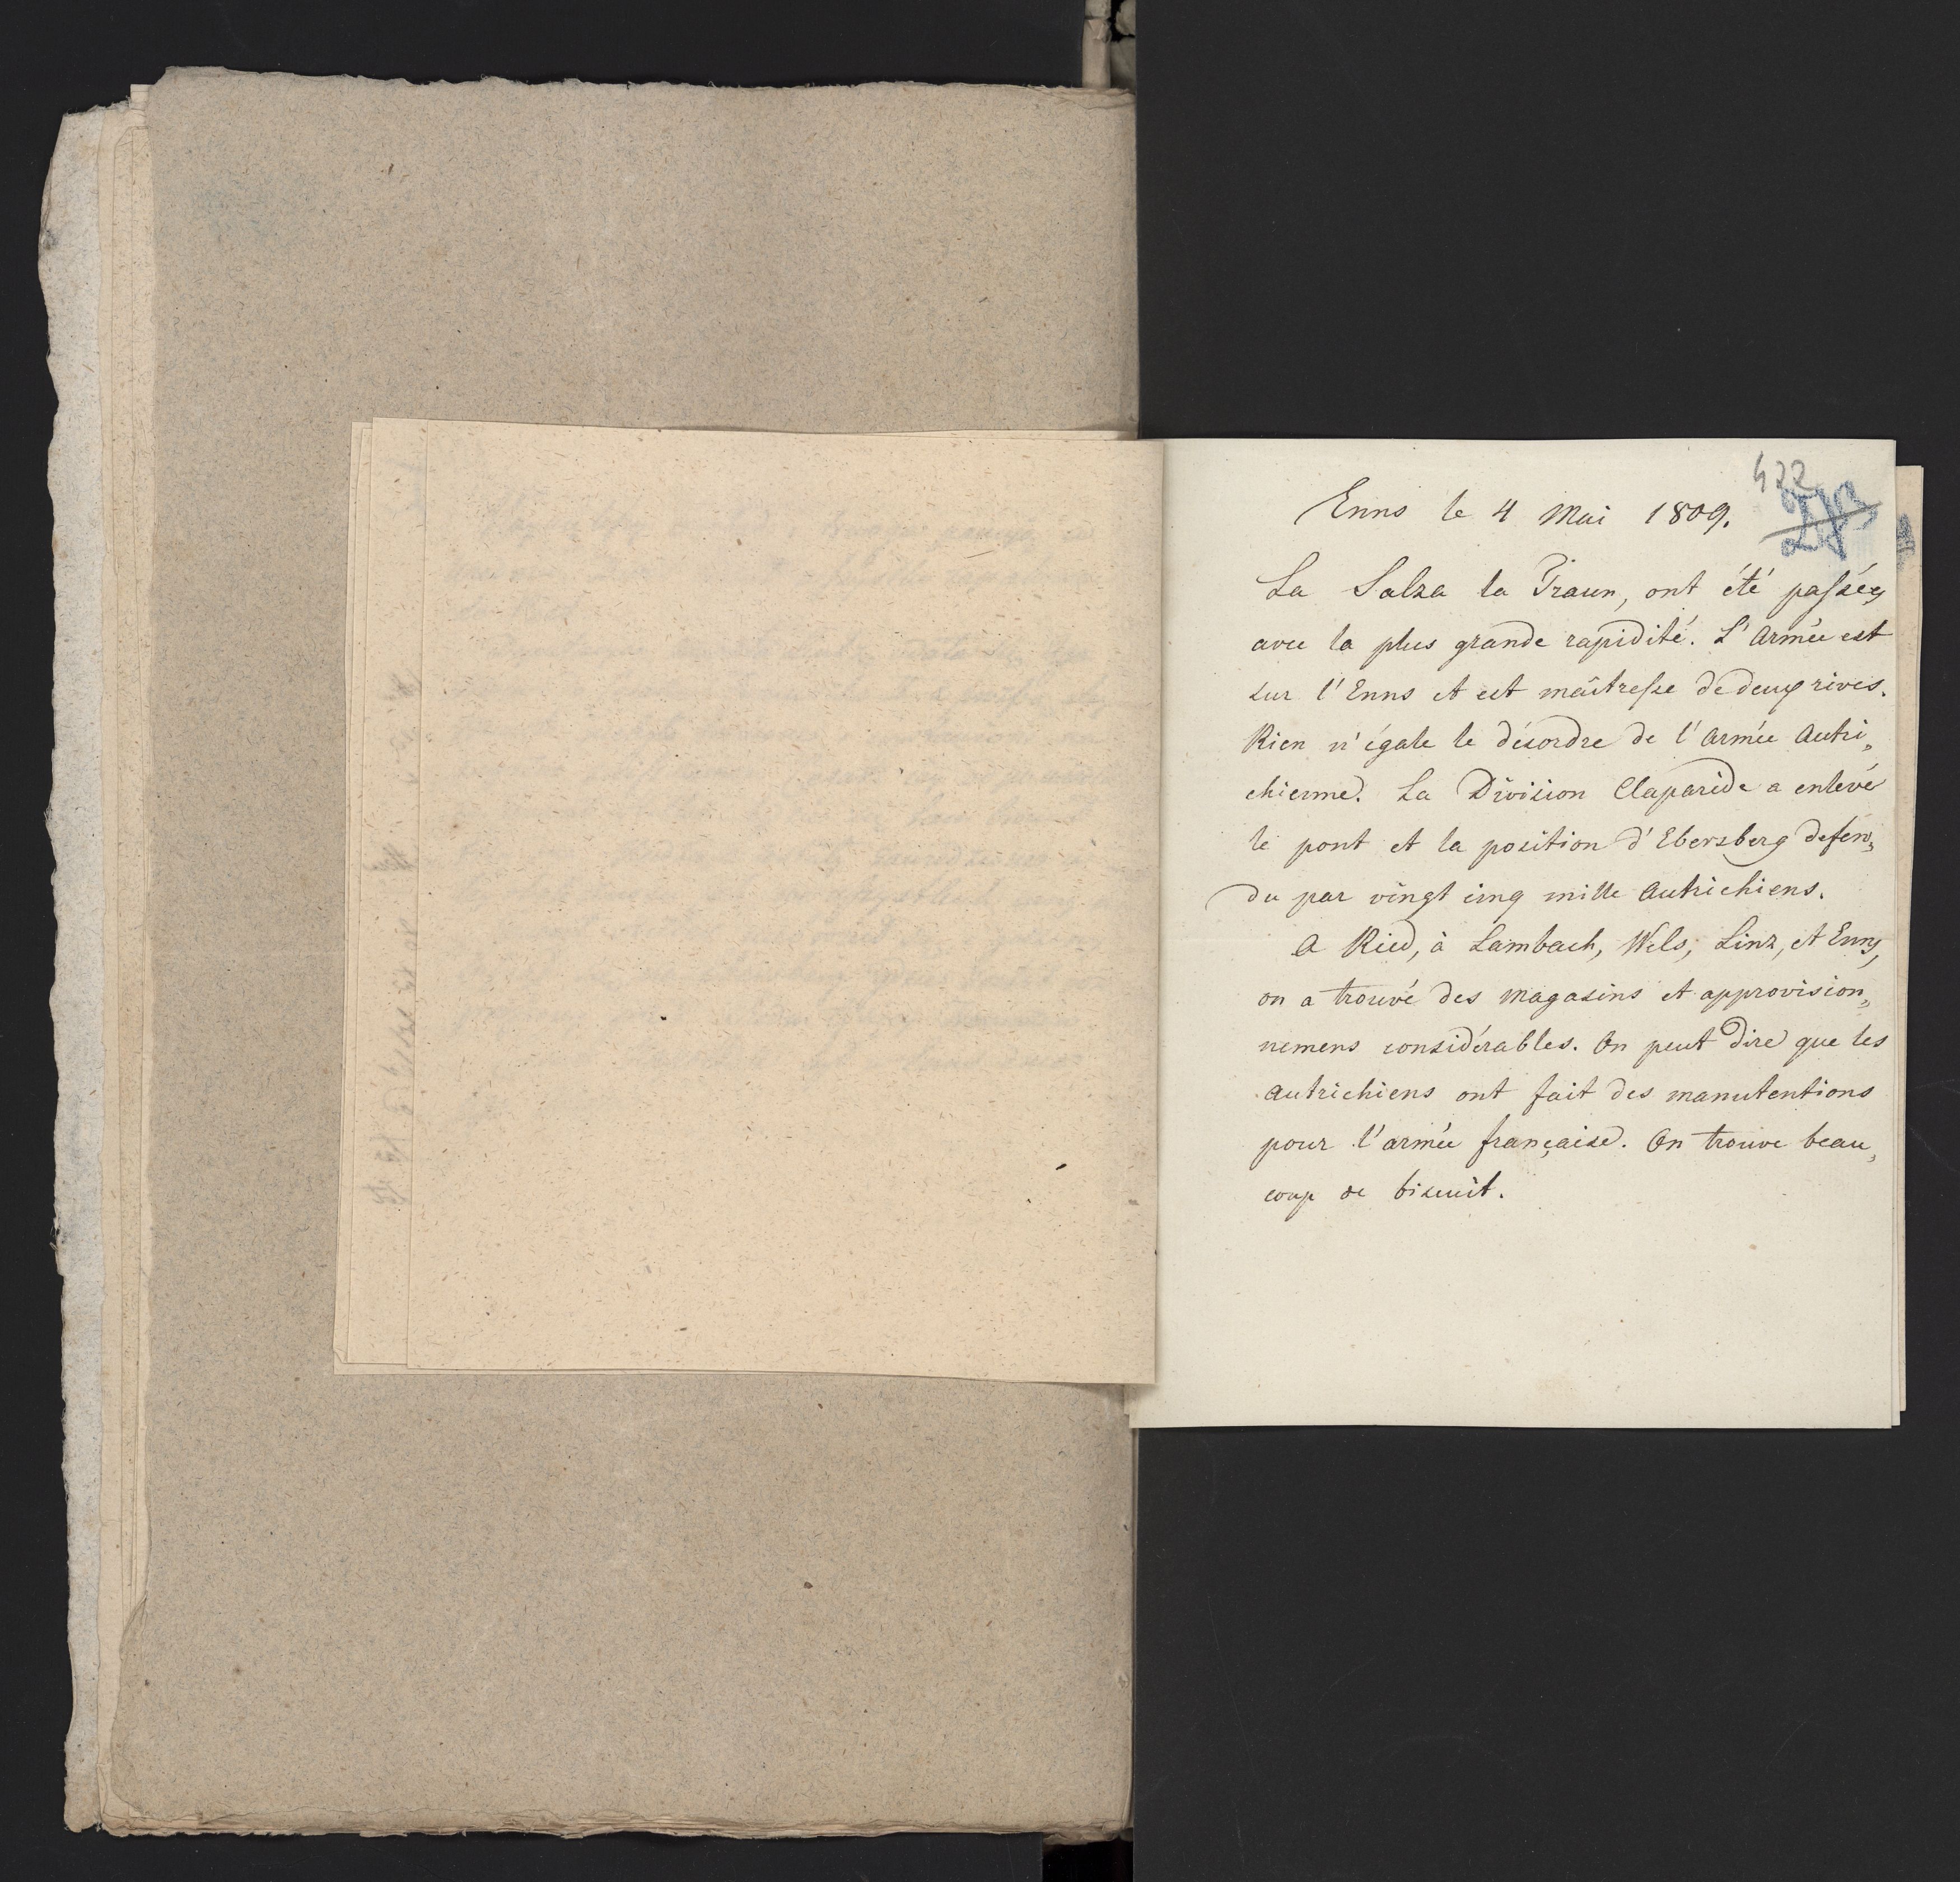 422
Enns le 4 Mai 1809.
La Salza la Traun, ont été passées
avec la plus grande rapidité. L'Armée est
sur l'Enns et est maîtresse de deux rives.
Rien n'égale le désordre de l'Armée Autri„
chienne. La Division Claparède a enlevé
le pont et la position d'Ebersberg defen„
du par vingt cinq mille Autrichiens.
A Ried, à Lambach, Wels, Linz, et Enns,
on a trouvé des magasins et approvision„
nemens considérables. On peut dire que les
Autrichiens ont fait des manutentions
pour l'armée française. On trouve beau„
coup de biscuit.